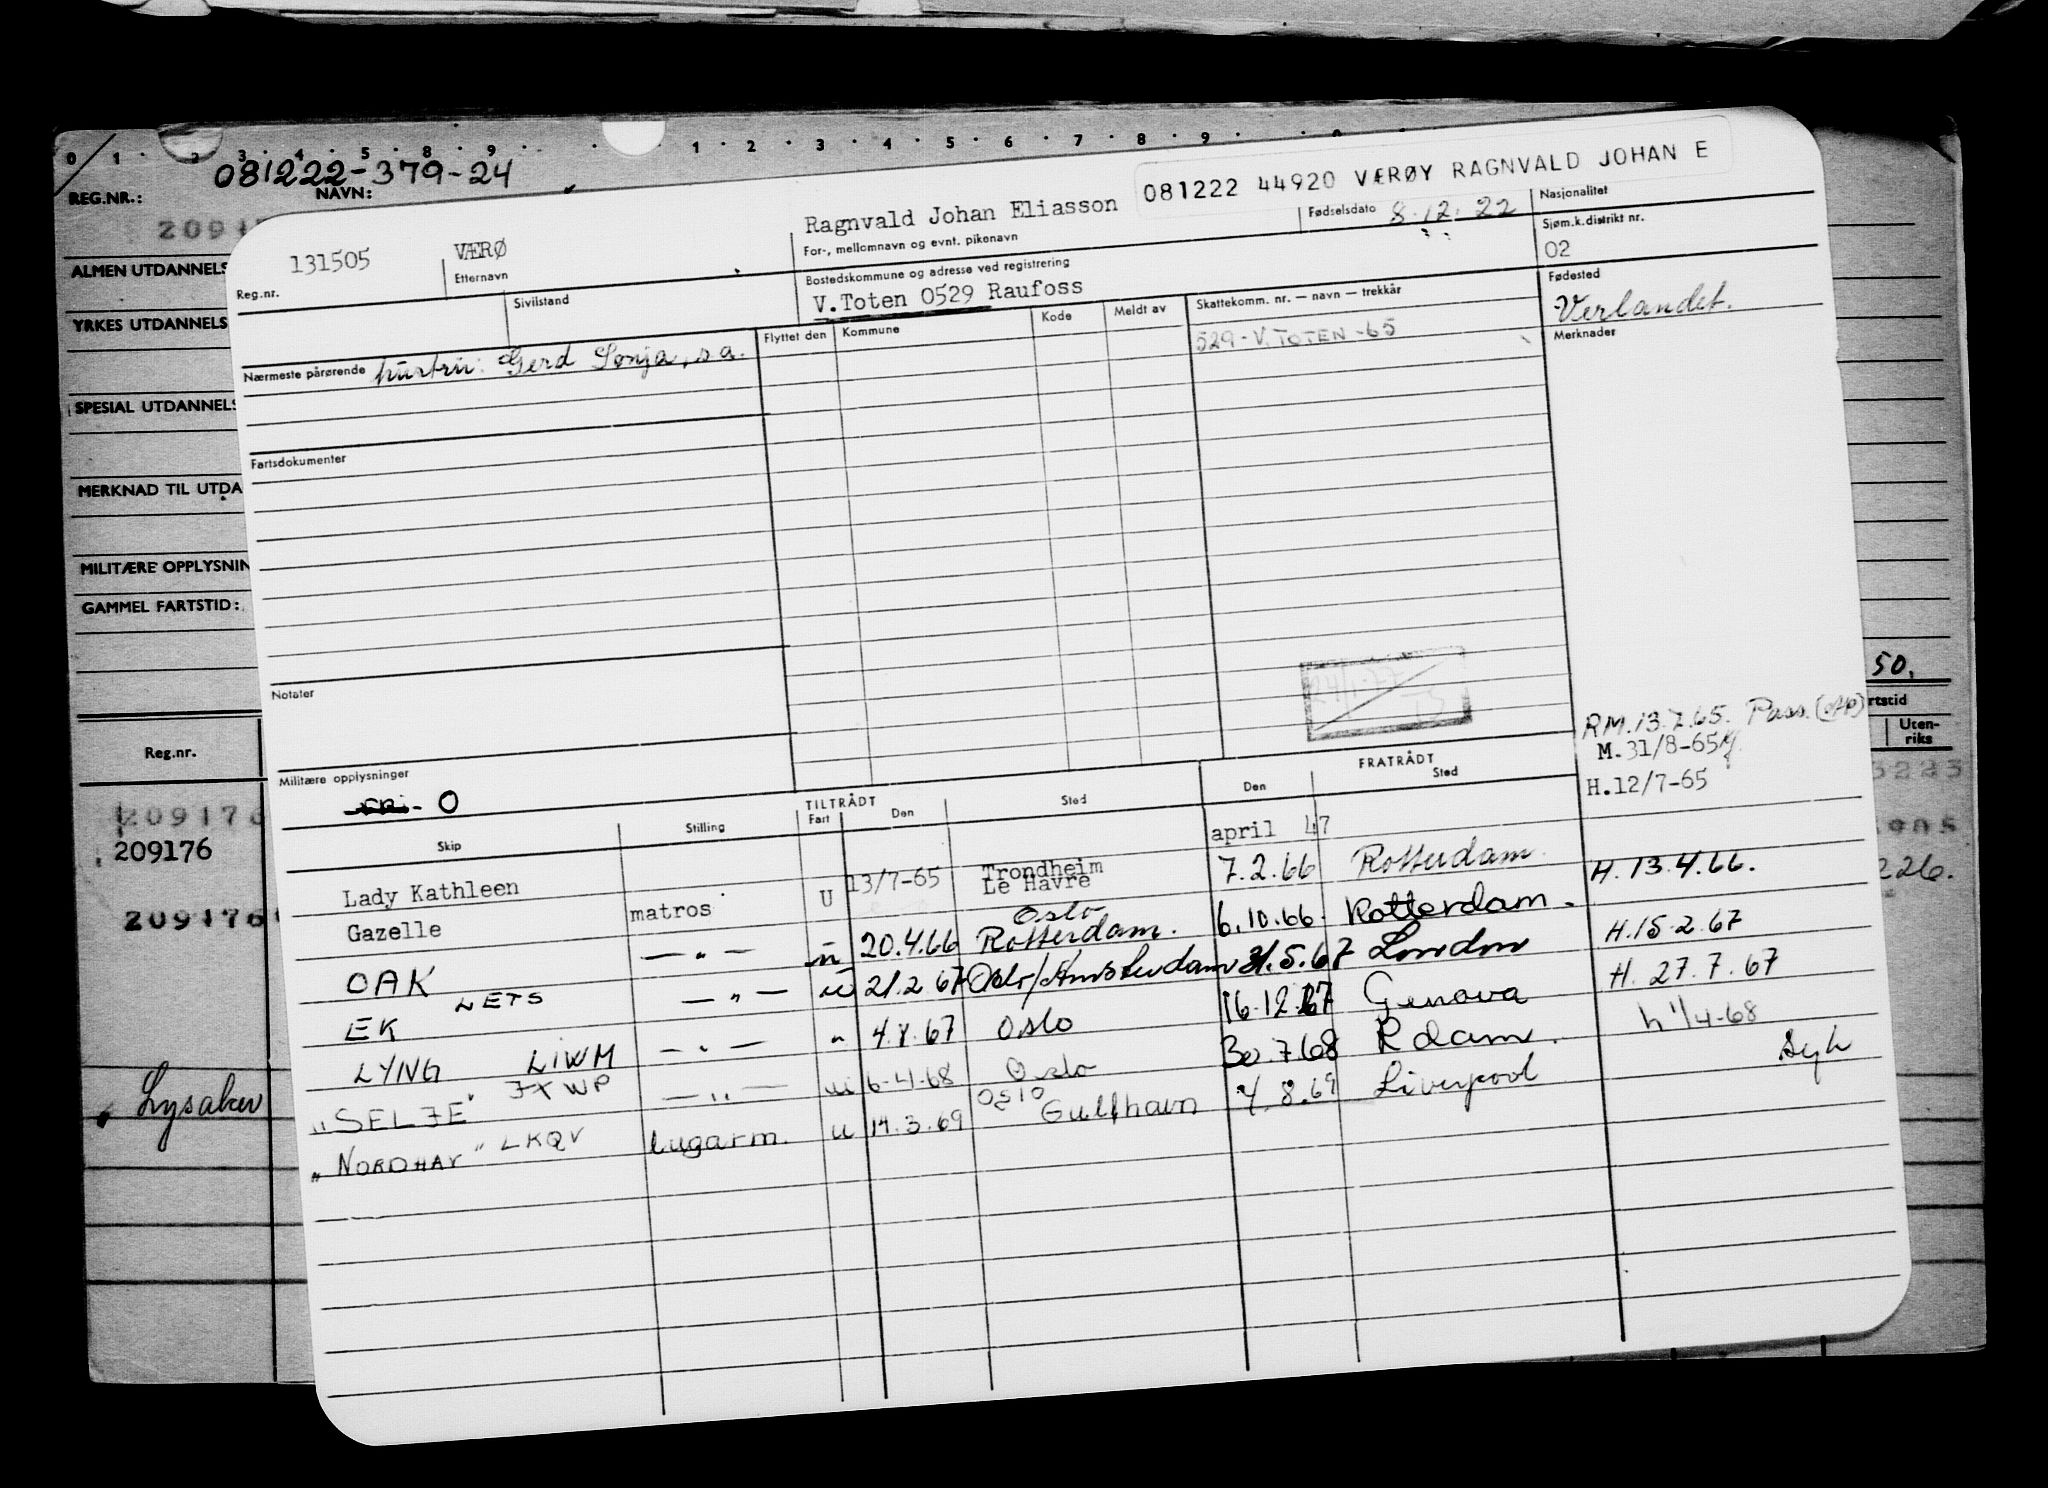 0 1 2 3 4 5 8 9 1 2 3 4 5 6 7 8 9
REG.NR.: 081222-379-24
NAVN:
ALMEN UTDANNELS
YRKES UTDANNELS
SPESIAL UTDANNELS
MERKNAD TIL UTDA
MILITÆRE OPPLYSNIN
GAMMEL FARTSTID:
Reg.nr.
209176
209176
209176
Lysaker
50.
rtstid
Uten-
riks
3223
226.
081222 44920 VÆRØY RAGNVALD JOHAN E
131505 VÆRØ Ragnvald Johan Eliasson 8.12.22
Reg.nr. Etternavn For-, mellomnavn og evnt. pikenavn Fødselsdato Nasjonalitet
Sivilstand
Bostedskommune og adresse ved registrering
V.Toten 0529 Raufoss
Sjøm.k.distrikt nr.
02
Fødested
Verlandet.
Nærmeste pårørende hustru: Gerd Sonja, s.a.
Flyttet den Kommune Kode Meldt av Skattekomm. nr. — navn — trekkår
Merknader
529-V.TOTEN-65
Fartsdokumenter
Notater
Militære opplysninger
O
RM.13.7.65. Pass.
M.31/8-65
H.12/7-65
TILTRÅDT FRATRÅDT
Skip Stilling Fart Den Sted Den Sted
april 47
Lady Kathleen Trondheim
Gazelle matros U 13/7-65 Le Havre 7.2.66 Rotterdam
H.13.4.66.
OAK — " — u 20.4.66 Oslo Rotterdam. 6.10.66 Rotterdam.
H.15.2.67
EK LETS — " — u 21.2.67 Oslo/Amsterdam 31.5.67 London
H.27.7.67
LYNG LIWM — " — " 4.8.67 Oslo 16.12.67 Genova
h 1/4-68
"SELJE" JXWP — " — u 6-4-68 Oslo 30.7.68 Rdam.
Syk
"NORDHAV" LKQV lugarm. u 14.3.69 Oslo Gulfhavn 4.8.69 Liverpool